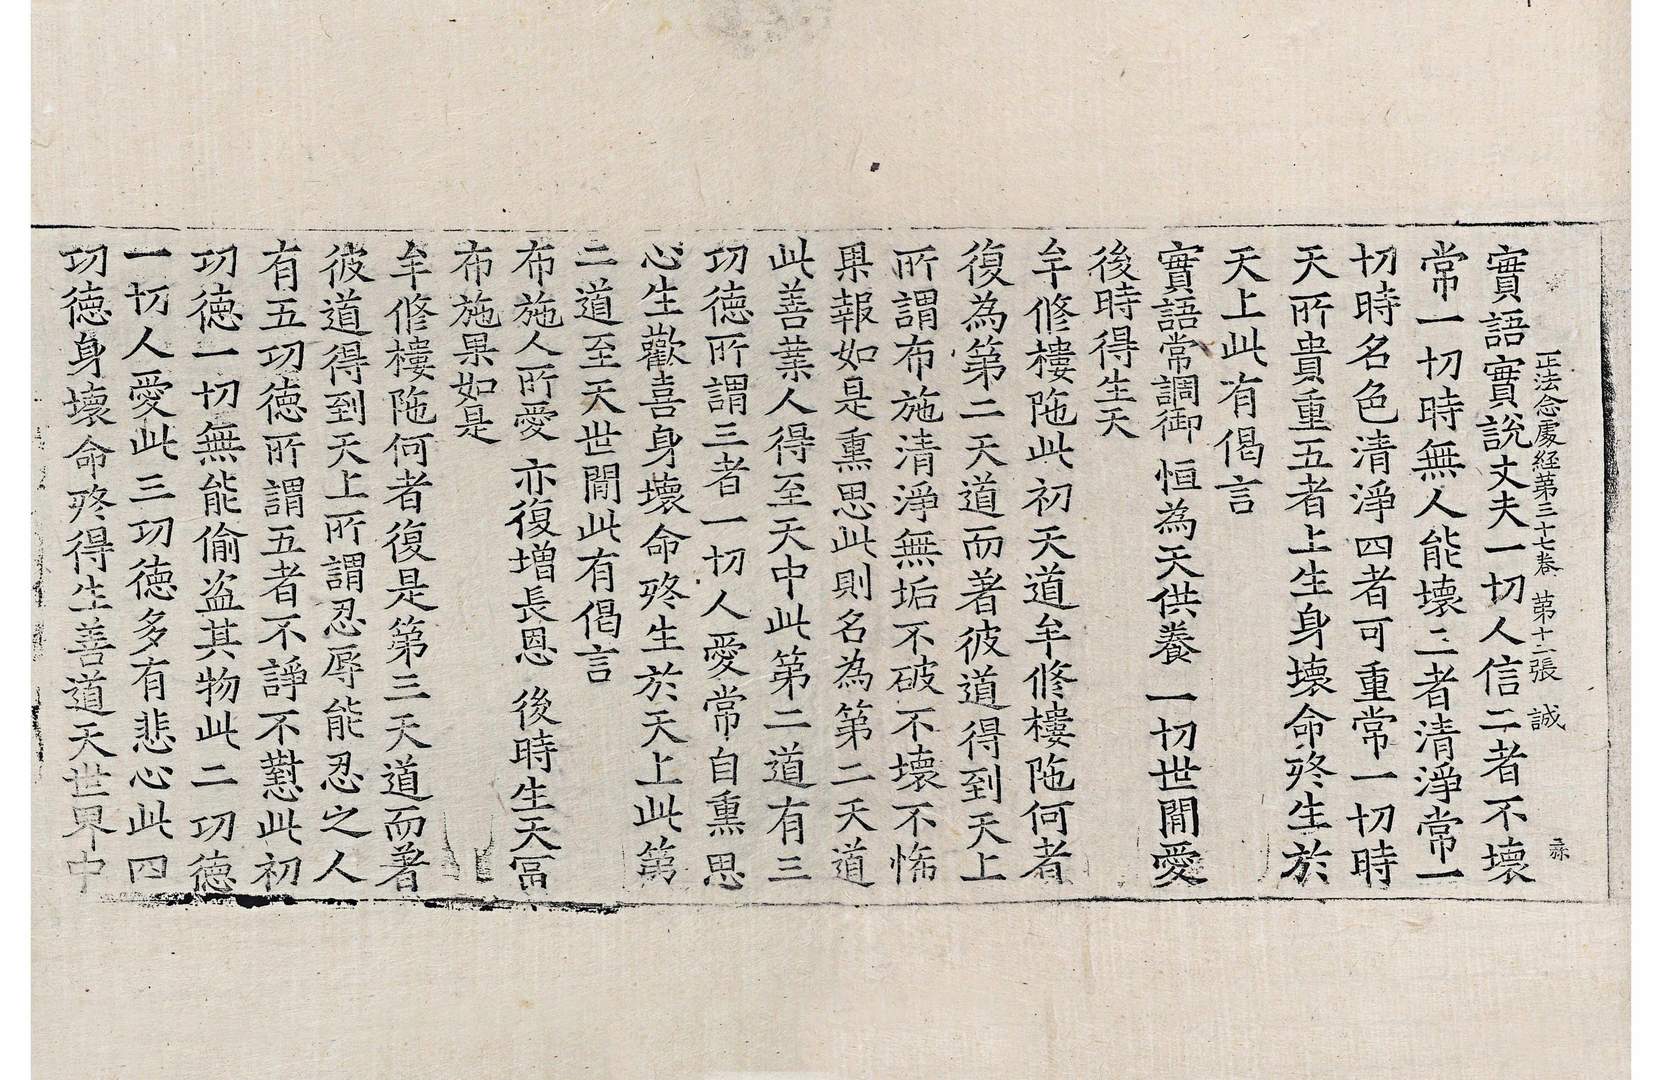 正法念處經第三十七卷 第十二張 誠
實語實說丈夫一切人信二者不壞
常一切時無人能壞三者清淨常一
切時名色清淨四者可重常一切時
天所貴重五者上生身壞命終生於
天上此有偈言
實語常調御 恒為天供養 一切世間愛
後時得生天
牟修樓陁此初天道牟修樓陁何者
復為第二天道而著彼道得到天上
所謂布施清淨無垢不破不壞不悕
果報如是熏思此則名為第二天道
此善業人得至天中此第二道有三
功德所謂三者一切人愛常自熏思
心生歡喜身壞命終生於天上此第
二道至天世間此有偈言
布施人所愛 亦復增長恩 後時生天冨
布施果如是
牟修樓陁何者復是第三天道而著
彼道得到天上所謂忍辱能忍之人
有五功德所謂五者不諍不懟此初
功德一切無能偷盗其物此二功德
一切人愛此三功德多有悲心此四
功德身壞命終得生善道天世界中